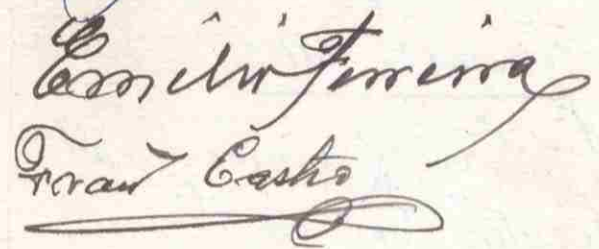 Emilio Ferreira
Fran Castro